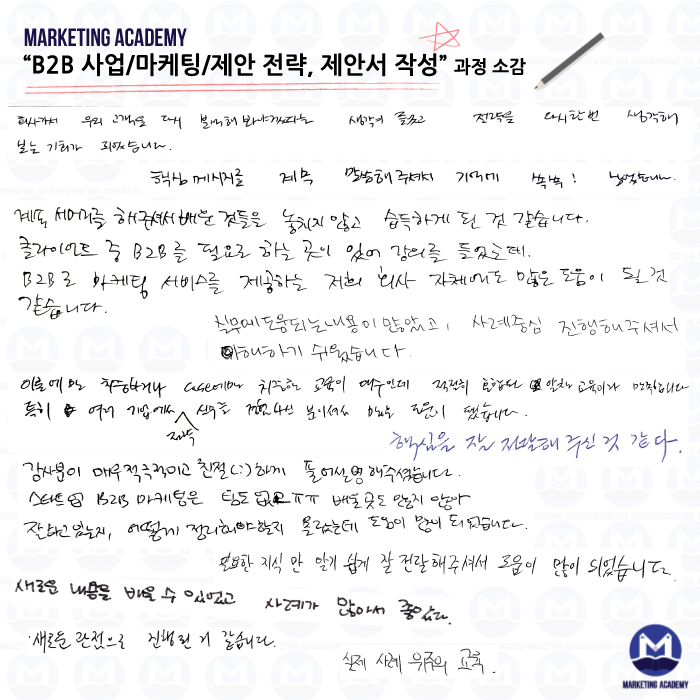 MARKETING ACADEMY
“B2B 사업/마케팅/제안 전략, 제안서 작성” 과정 소감
회사가서 우리 고객을 다시 분석해 봐야겠다는 생각이 들었고 전략을 다시한번 생각해
보는 기회가 되었습니다.
핵심 메시지를 계속 말씀해주셔서 기억에 쏙쏙! 남았습니다.
계속 써머리를 해주셔서 배운 것들을 놓치지 않고 습득하게 된 것 같습니다.
클라이언트 중 B2B를 필요로 하는 곳이 있어 강의를 들었는데,
B2B로 마케팅 서비스를 제공하는 저희 회사 자체에도 많은 도움이 될 것
같습니다.
실무에 도움되는 내용이 많았고, 사례중심 진행해주셔서
이해하기 쉬웠습니다.
이론에만 치중하거나 case에만 치중하는 교육이 대부분인데 적절히 알찬 교육이라 만족합니다
특히 여러 기업에서 전략 수주 분이셔서 도움이 됐습니다.
핵심을 잘 전달해 주신 것 같다.
강사분이 매우 적극적이고 친절(:)하게 풀어 설명해주셨습니다.
스타트업 B2B 마케팅은 팀도 없고ㅠㅠ 배울곳도 많지 않아
잘하고 있는지, 어떻게 정리해야할지 몰랐는데 도움이 많이 되었습니다.
필요한 지식 만 알기 쉽게 잘 전달해주셔서 도움이 많이 되었습니다.
새로운 내용을 배울 수 있었고 사례가 많아서 좋았다.
·새로운 관점으로 진행된 거 같습니다.
실제 사례 위주의 교육.
MARKETING ACADEMY